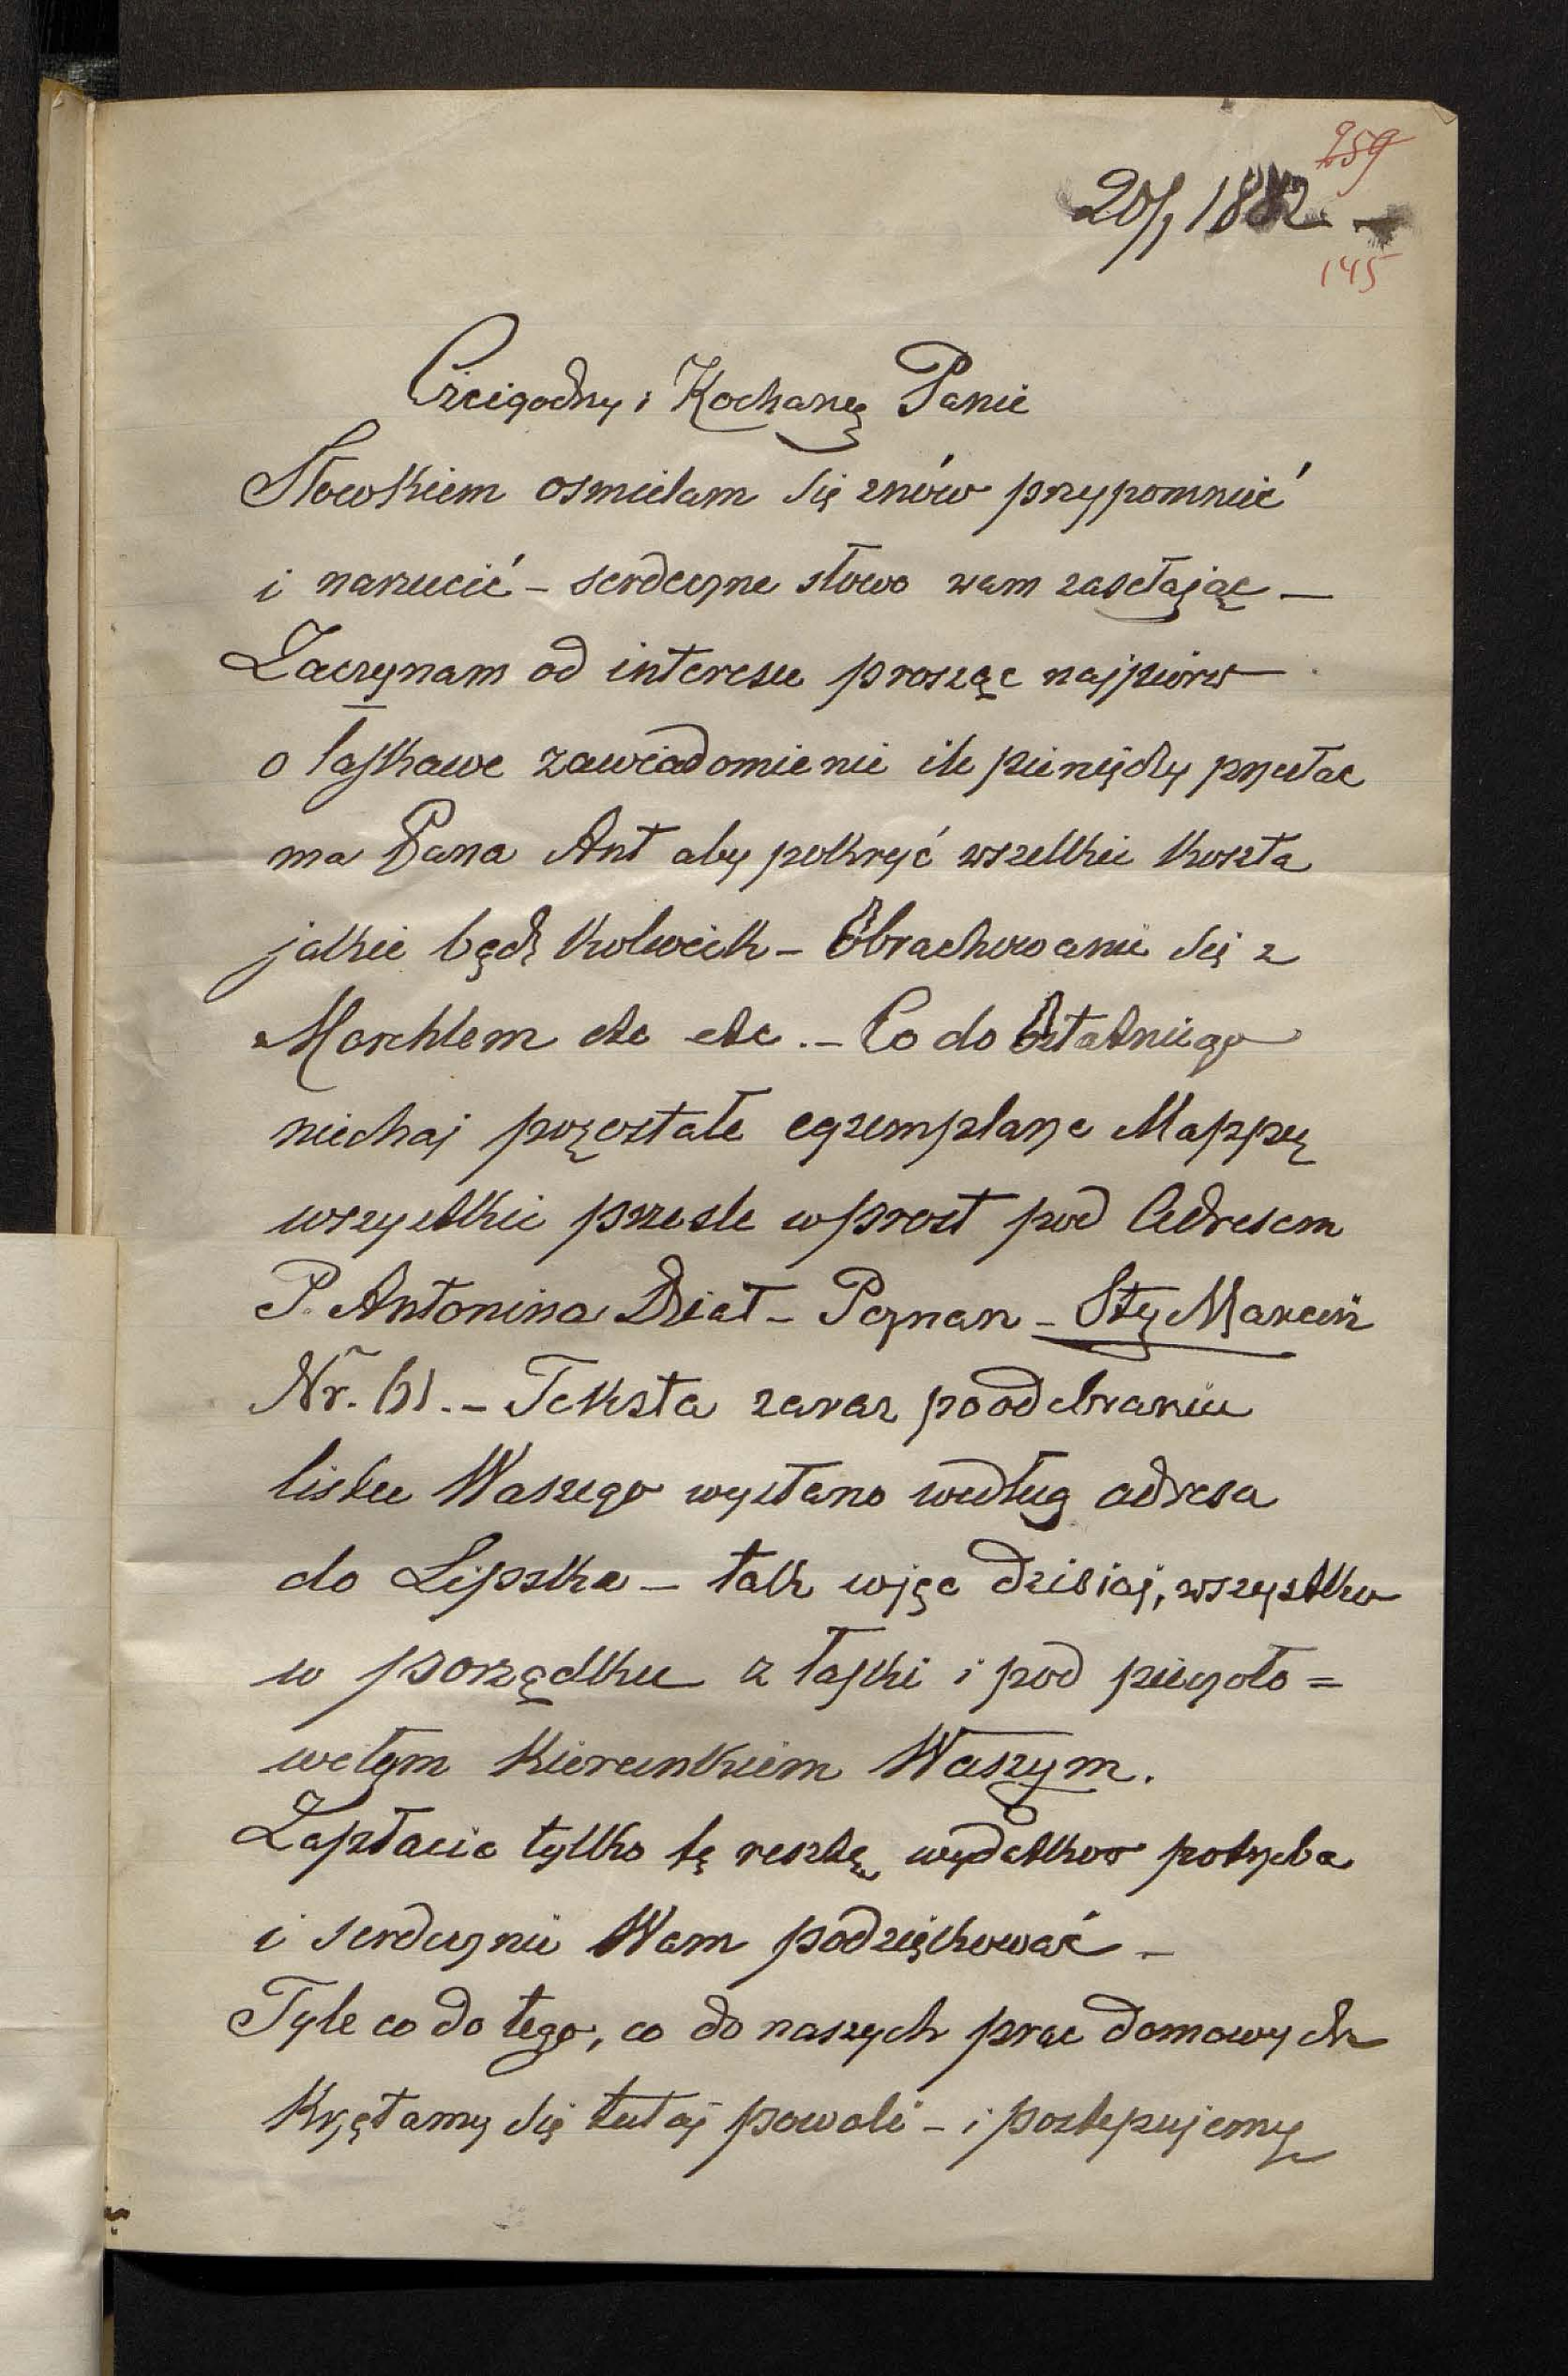 259
20/1 1882 -
145
Czcigodny i Kochany Panie
Słowkiem osmielam się znów przypomnieć
i narzucić - serdeczne słowo wam zasełając -
Zaczynam od interesu prosząc najpierw
o łaskawe zawiadomienie ile pieniędzy przesłac
ma Pana Ant aby pokryć wszelkie koszta
jakie bądź kolwiek - Obrachowanie się z
Marchlem etc etc. - Co do Ostatniego
niechaj pozostałe egzemplarze Mappy
wszystkie prześle wprost pod Adresem
P. Antonina Dział - Poznan - Sty Marcin
Nr. 61. - Teksta zaraz po odebraniu
listu Waszego wysłano według adresa
do Lipska - tak więc dzisiaj, wszystko
w porządku z łaski i pod pieczoło=
witym kierunkiem Waszym.
Zapłacic tylko tę resztę wydatkow potrzeba
i serdecznie Wam podziękować -
Tyle co do tego, co do naszych prac domowych
Krzątamy się tutaj powoli - i postępujemy